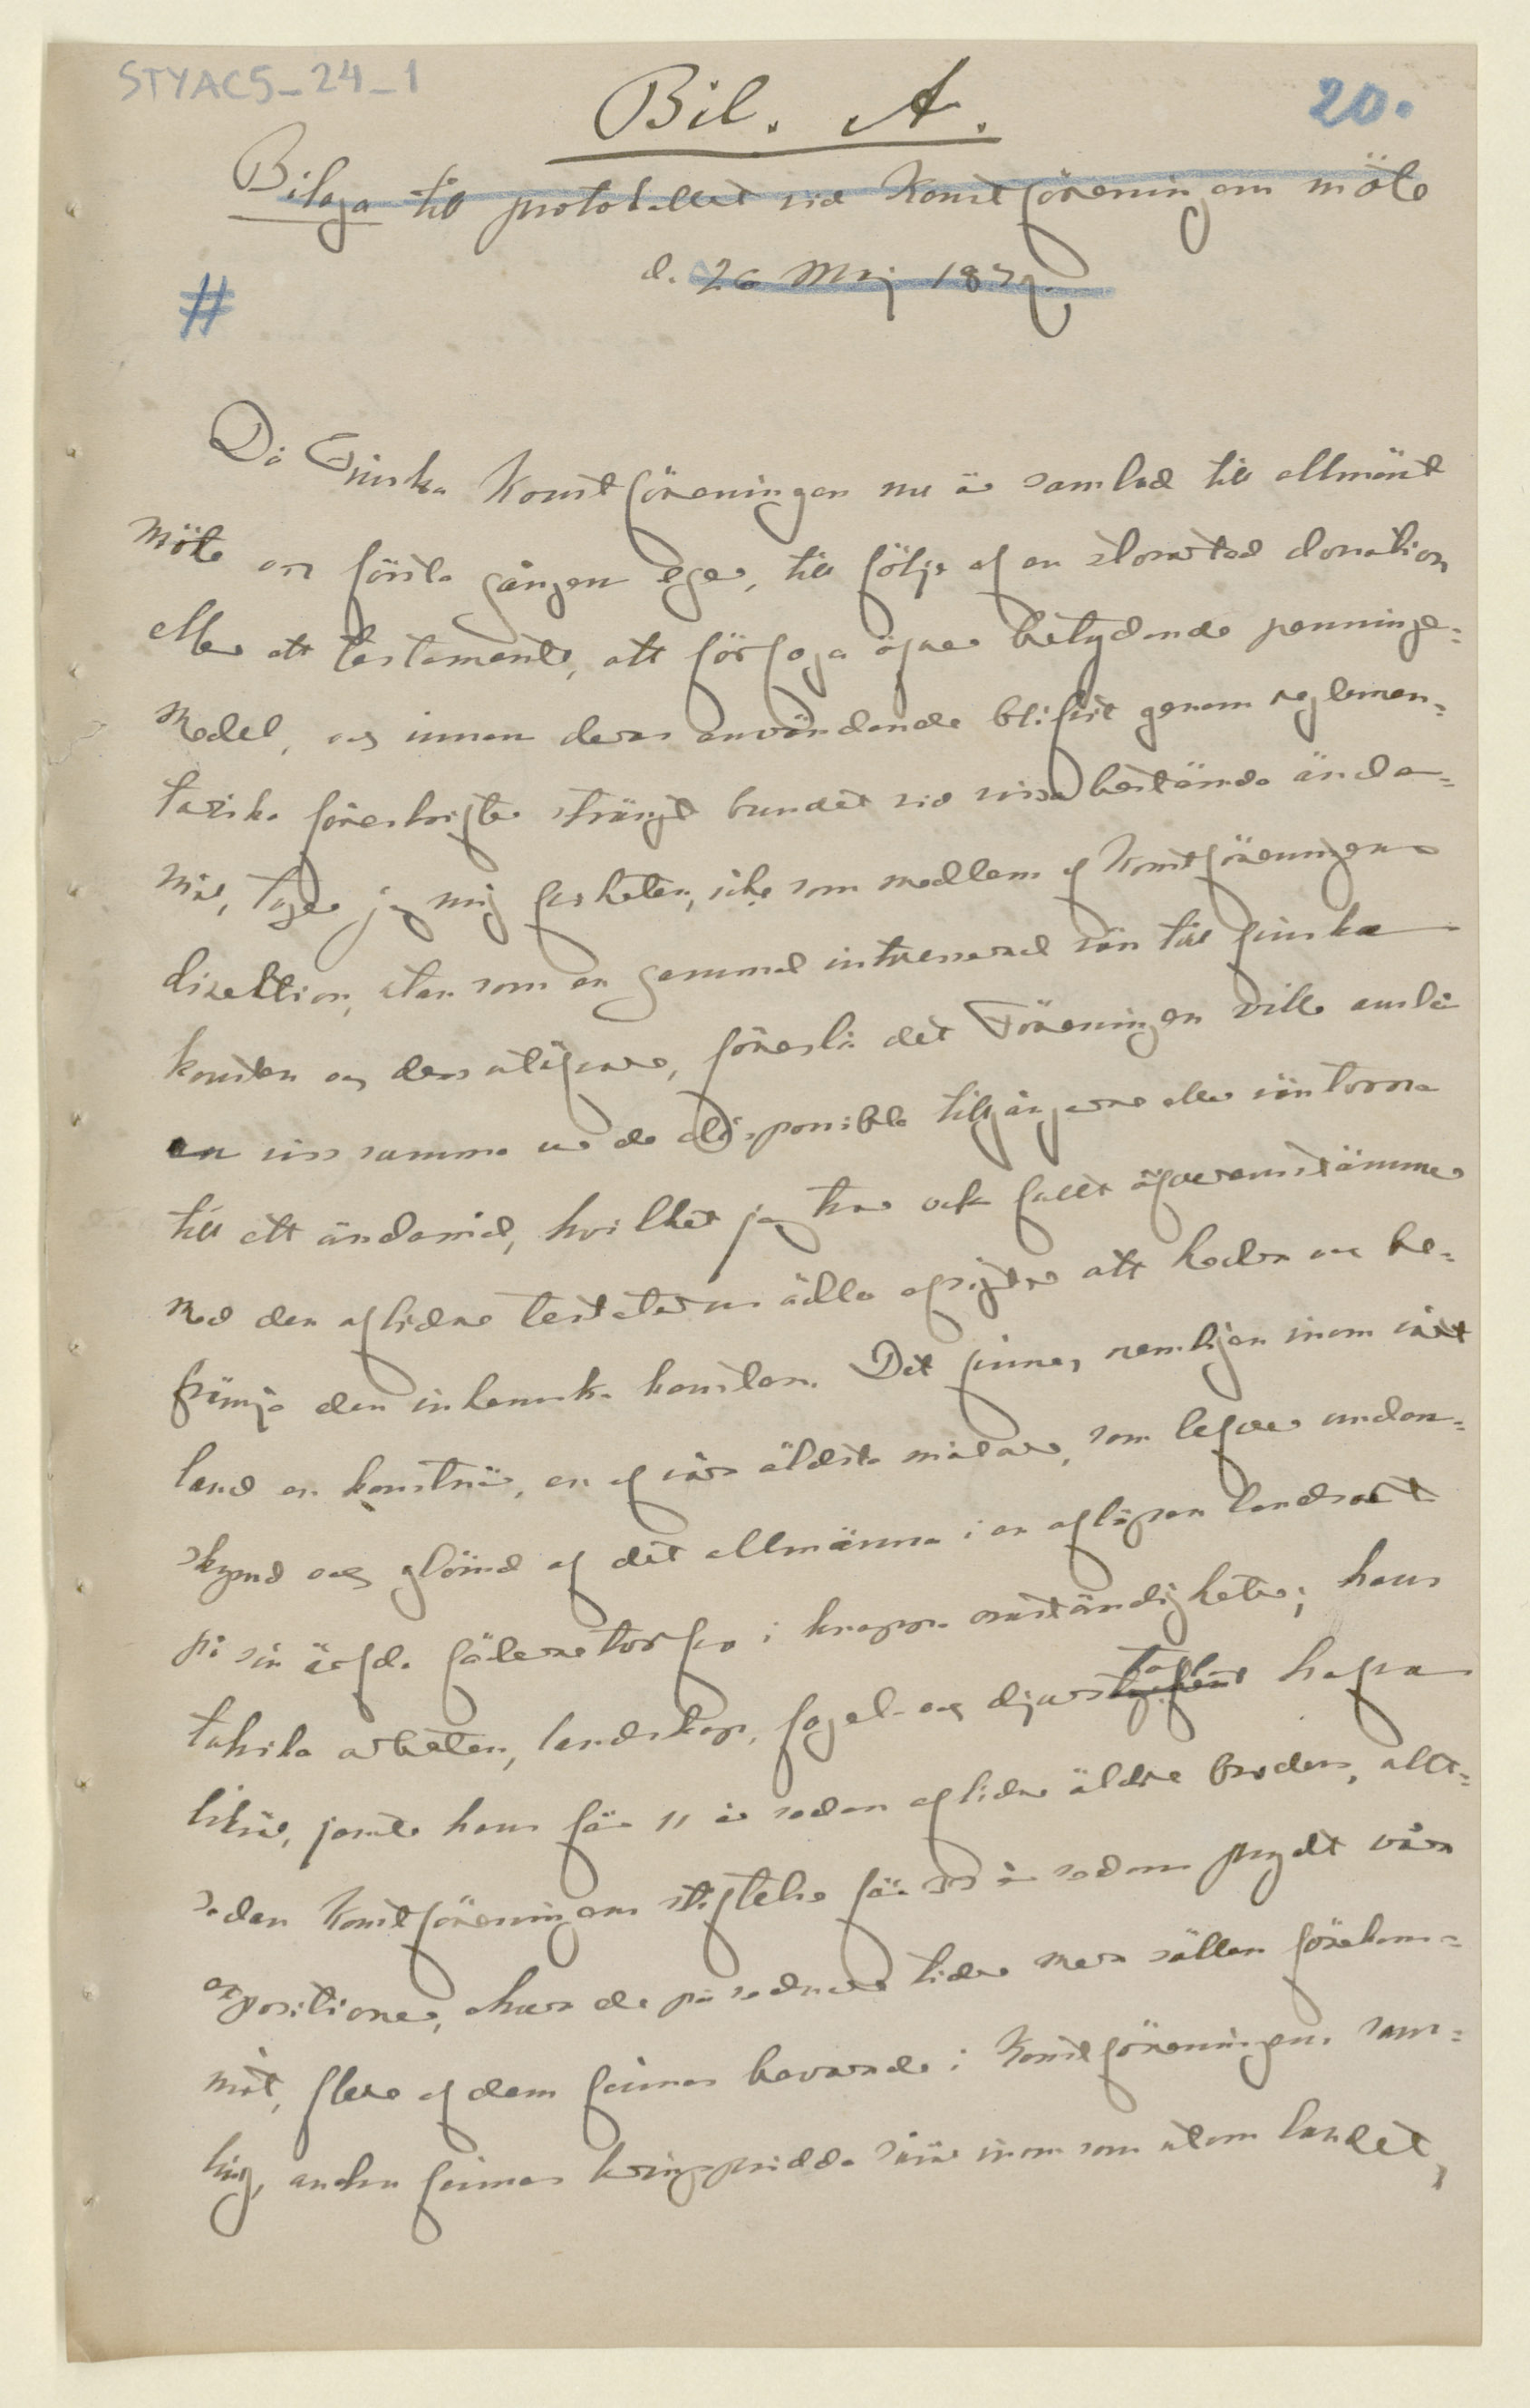 STYAC5_24_1
Bil. A.
20.
Bilaga till protokollet vid Konstföreningens möte
d. 26 Maj 1879.
#
Då Finska Konstföreningen nu är samlad till allmänt
möte och första gången eger, till följe af en storartad donation
eller ett testamente, att förfoga öfver betydande penninge=
medel, och innan deras användande blifvit genom reglemen=
tariska föreskrifter strängt bundet vid vissa bestämda ända=
mål, tager jag mig friheten, icke som medlem af Konstföreningens
direktion, utan som en gammal intresserad vän till finska
konsten och dess utöfvare, föreslå det Föreningen ville anslå
en viss summa ur de disponibla tillgångarne eller räntorna
till ett ändamål, hvilket jag tror ock fullt öfverensstämmer
med den aflidne testators ädla afsigter att hedra och be=
främja den inhemska konsten. Det finnes nemligen inom vårt
land en konstnär, en af våra äldsta målare, som lefver undan=
skymd och glömd af det allmänna i en aflägsen landsort
på sin ärfda fäderne torfva i knappa omständigheter; hans
talrika arbeten, landskap, fogel- och djurstycken taflor hafva
likväl, jemte hans för 11 år sedan aflidne äldre broders, allt=
sedan Konstföreningens stiftelse för 33 år sedan prydt våra
expositioner, ehuru de på sednare tider mera sällan förekom=
mit, flere af dem finnas bevarade i Konstföreningens sam=
ling, andra finnas kringspridda såväl inom som utom landet,